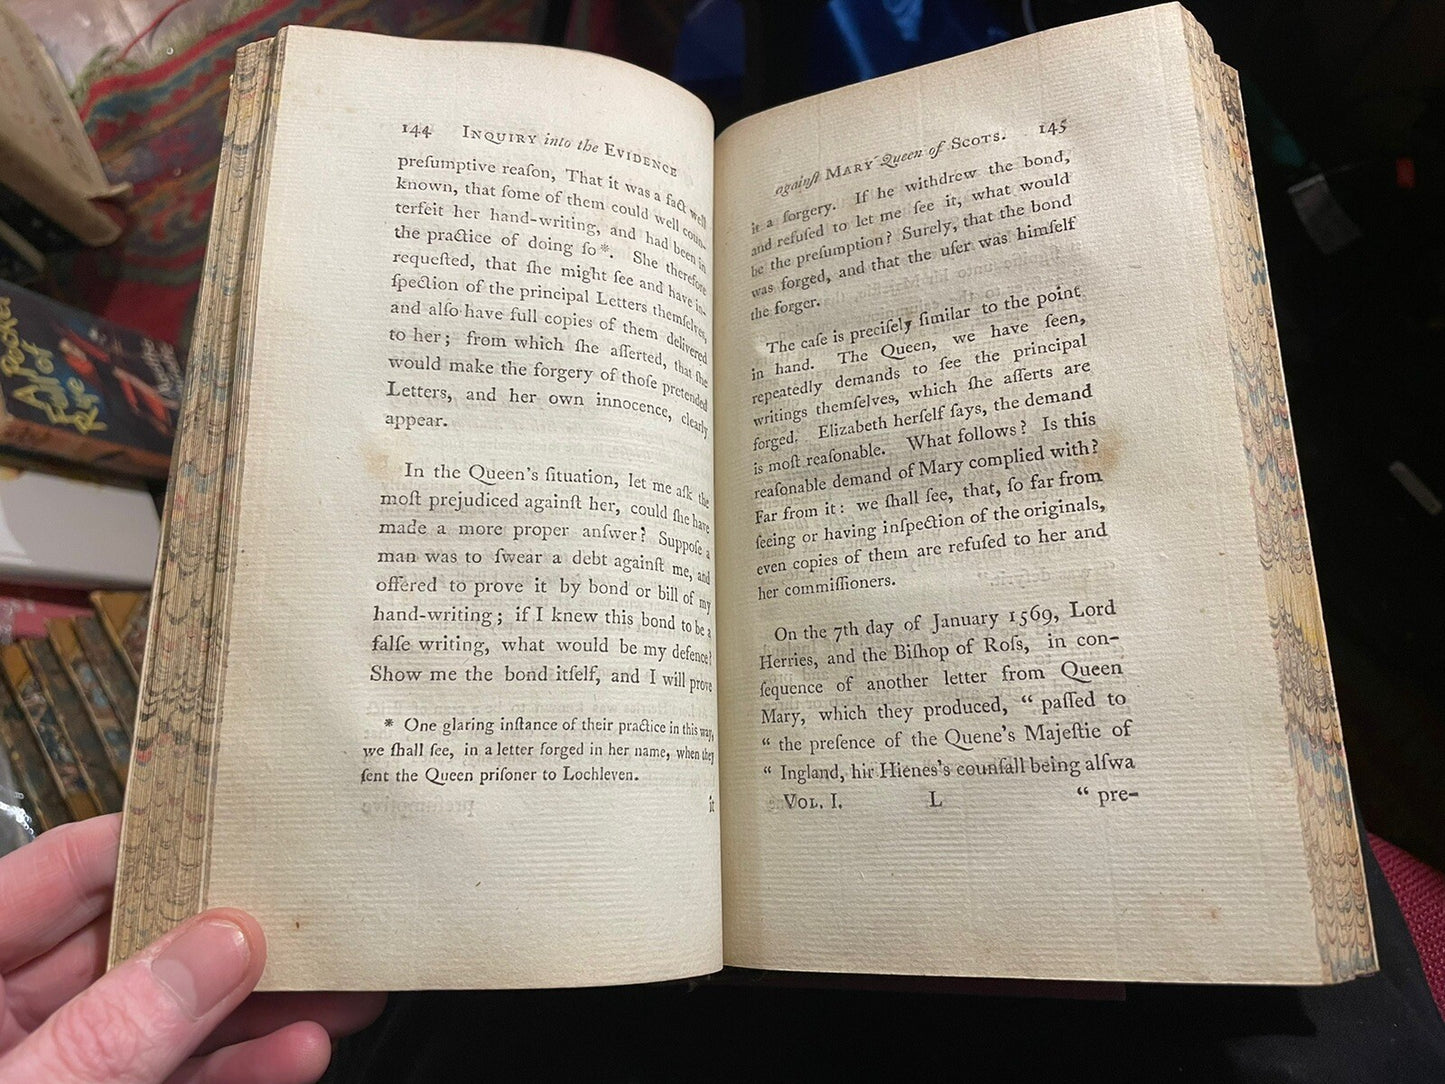 144 INQUIRY into the EVIDENCE
preſumptive reaſon, That it was a fact well
known, that ſome of them could well coun-
terfeit her hand-writing, and had been in
the practice of doing ſo*. She therefore
requeſted, that ſhe might ſee and have in-
ſpection of the principal Letters themſelves,
and alſo have full copies of them delivered
to her; from which ſhe aſſerted, that ſhe
would make the forgery of thoſe pretended
Letters, and her own innocence, clearly
appear.
In the Queen's ſituation, let me aſk the
moſt prejudiced againſt her, could ſhe have
made a more proper anſwer? Suppoſe a
man was to ſwear a debt againſt me, and
offered to prove it by bond or bill of my
hand-writing; if I knew this bond to be a
falſe writing, what would be my defence?
Show me the bond itſelf, and I will prove
* One glaring inſtance of their practice in this way,
we ſhall ſee, in a letter forged in her name, when they
ſent the Queen priſoner to Lochleven.
it
againſt MARY Queen of SCOTS. 145
it a forgery. If he withdrew the bond,
and refuſed to let me ſee it, what would
be the preſumption? Surely, that the bond
was forged, and that the uſer was himſelf
the forger.
The caſe is preciſely ſimilar to the point
in hand. The Queen, we have ſeen,
repeatedly demands to ſee the principal
writings themſelves, which ſhe aſſerts are
forged. Elizabeth herſelf ſays, the demand
is moſt reaſonable. What follows? Is this
reaſonable demand of Mary complied with?
Far from it: we ſhall ſee, that, ſo far from
ſeeing or having inſpection of the originals,
even copies of them are refuſed to her and
her commiſſioners.
On the 7th day of January 1569, Lord
Herries, and the Biſhop of Roſs, in con-
ſequence of another letter from Queen
Mary, which they produced, “ paſſed to
“ the preſence of the Quene's Majeſtie of
“ Ingland, hir Hienes's counſall being alſwa
VOL. I. L “ pre-
A
Fall of
Rye